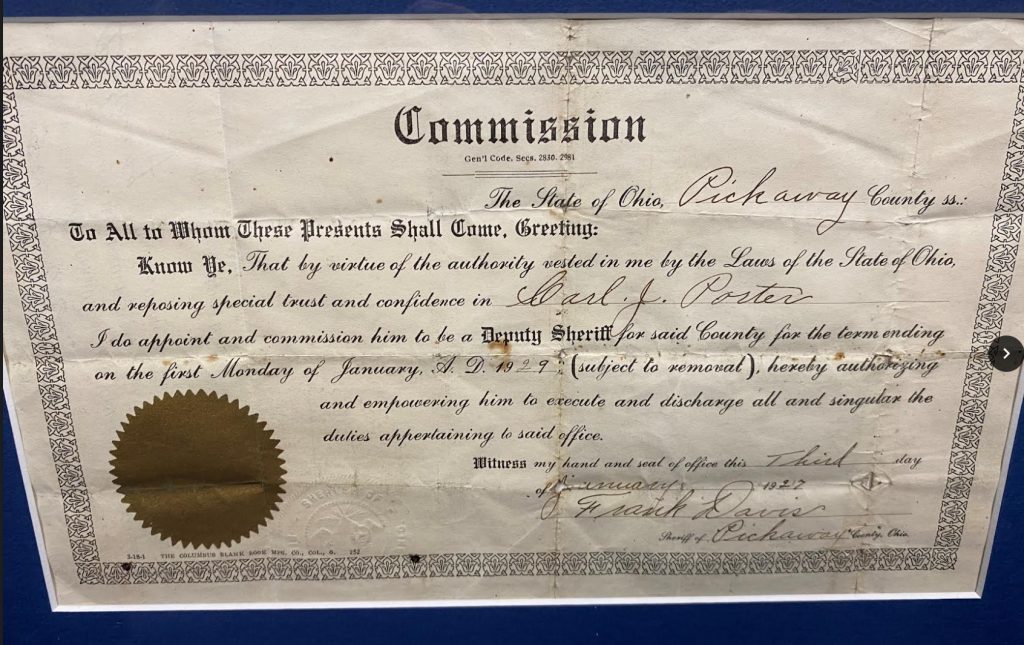 Commission
Gen'l Code, Secs. 2830, 2981
The State of Ohio, Pickaway County ss.:
To All to Whom These Presents Shall Come, Greeting:
Know Ye, That by virtue of the authority vested in me by the Laws of the State of Ohio,
and reposing special trust and confidence in Carl. J. Porter
I do appoint and commission him to be a Deputy Sheriff for said County for the term ending
on the first Monday of January, A. D. 1929 (subject to removal), hereby authorizing
and empowering him to execute and discharge all and singular the
duties appertaining to said office.
Witness my hand and seal of office this Third day
of January 1927
Frank Davis
Sheriff of Pickaway County, Ohio.
THE COLUMBUS BLANK BOOK MFG. CO., COL., O. 252